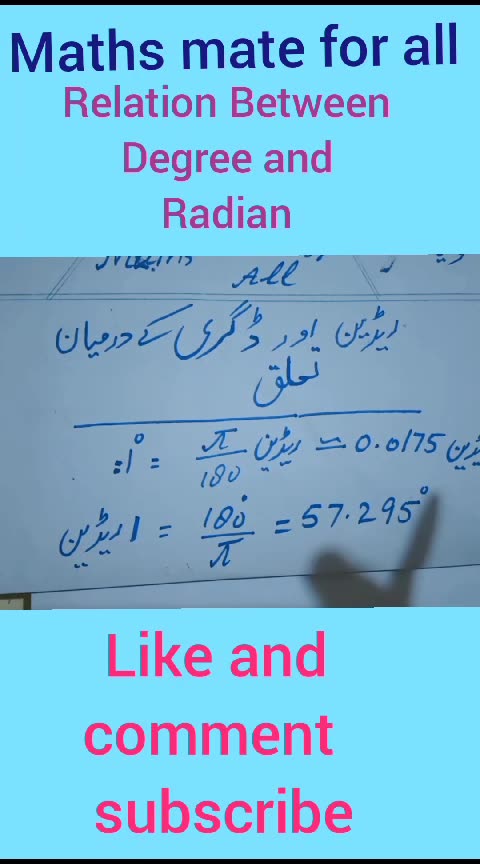 Maths mate for all
Relation Between
Degree and
Radian
All
ریڈین اور ڈگری کے درمیان
تعلق
1° = π/180 ریڈین ≃ 0.0175 ریڈین
1 ریڈین = 180°/π = 57.295°
Like and
comment
subscribe